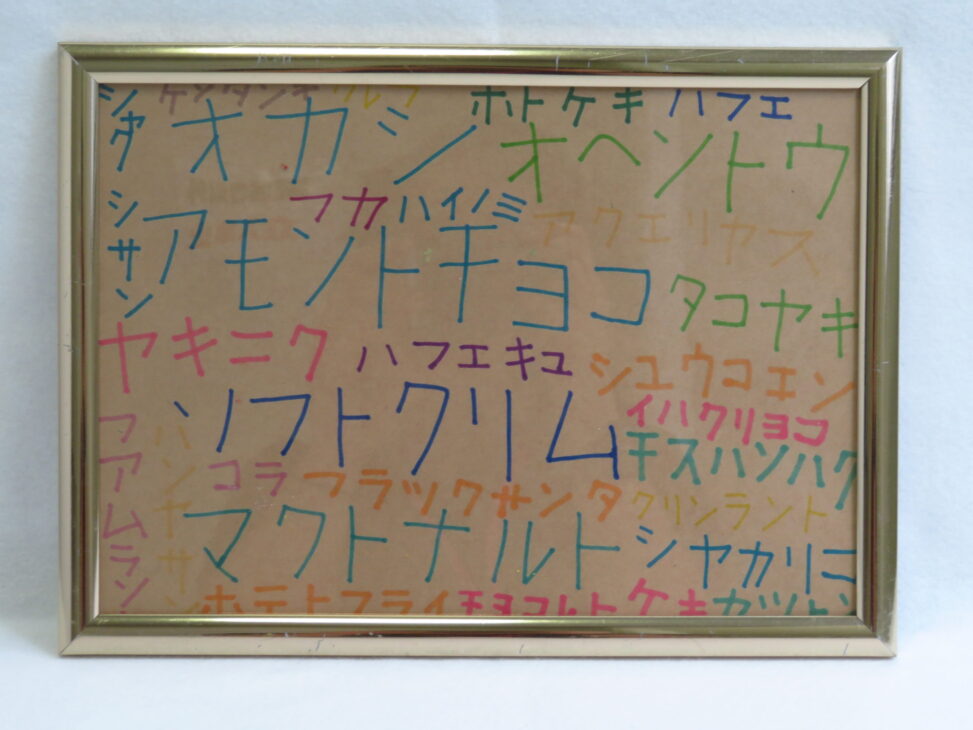 ケンタンキ
クレフ
ホトケキ
ハフエ
シタ
ヤ
オカシ
オヘントウ
シサン
フカ
ハイノミ
アモントチョコ
アクエリヤス
タコヤキ
ヤキニク
ハフエキユ
シユウコエン
ソフトクリム
イハクリヨコ
チスハンハク
フアムラン
ハンヤサン
コラ
フラツクサンタ
クリンラント
マクトナルト
シヤカリニ
ホテトフライ
チヨコレト
ケキ
カツトン